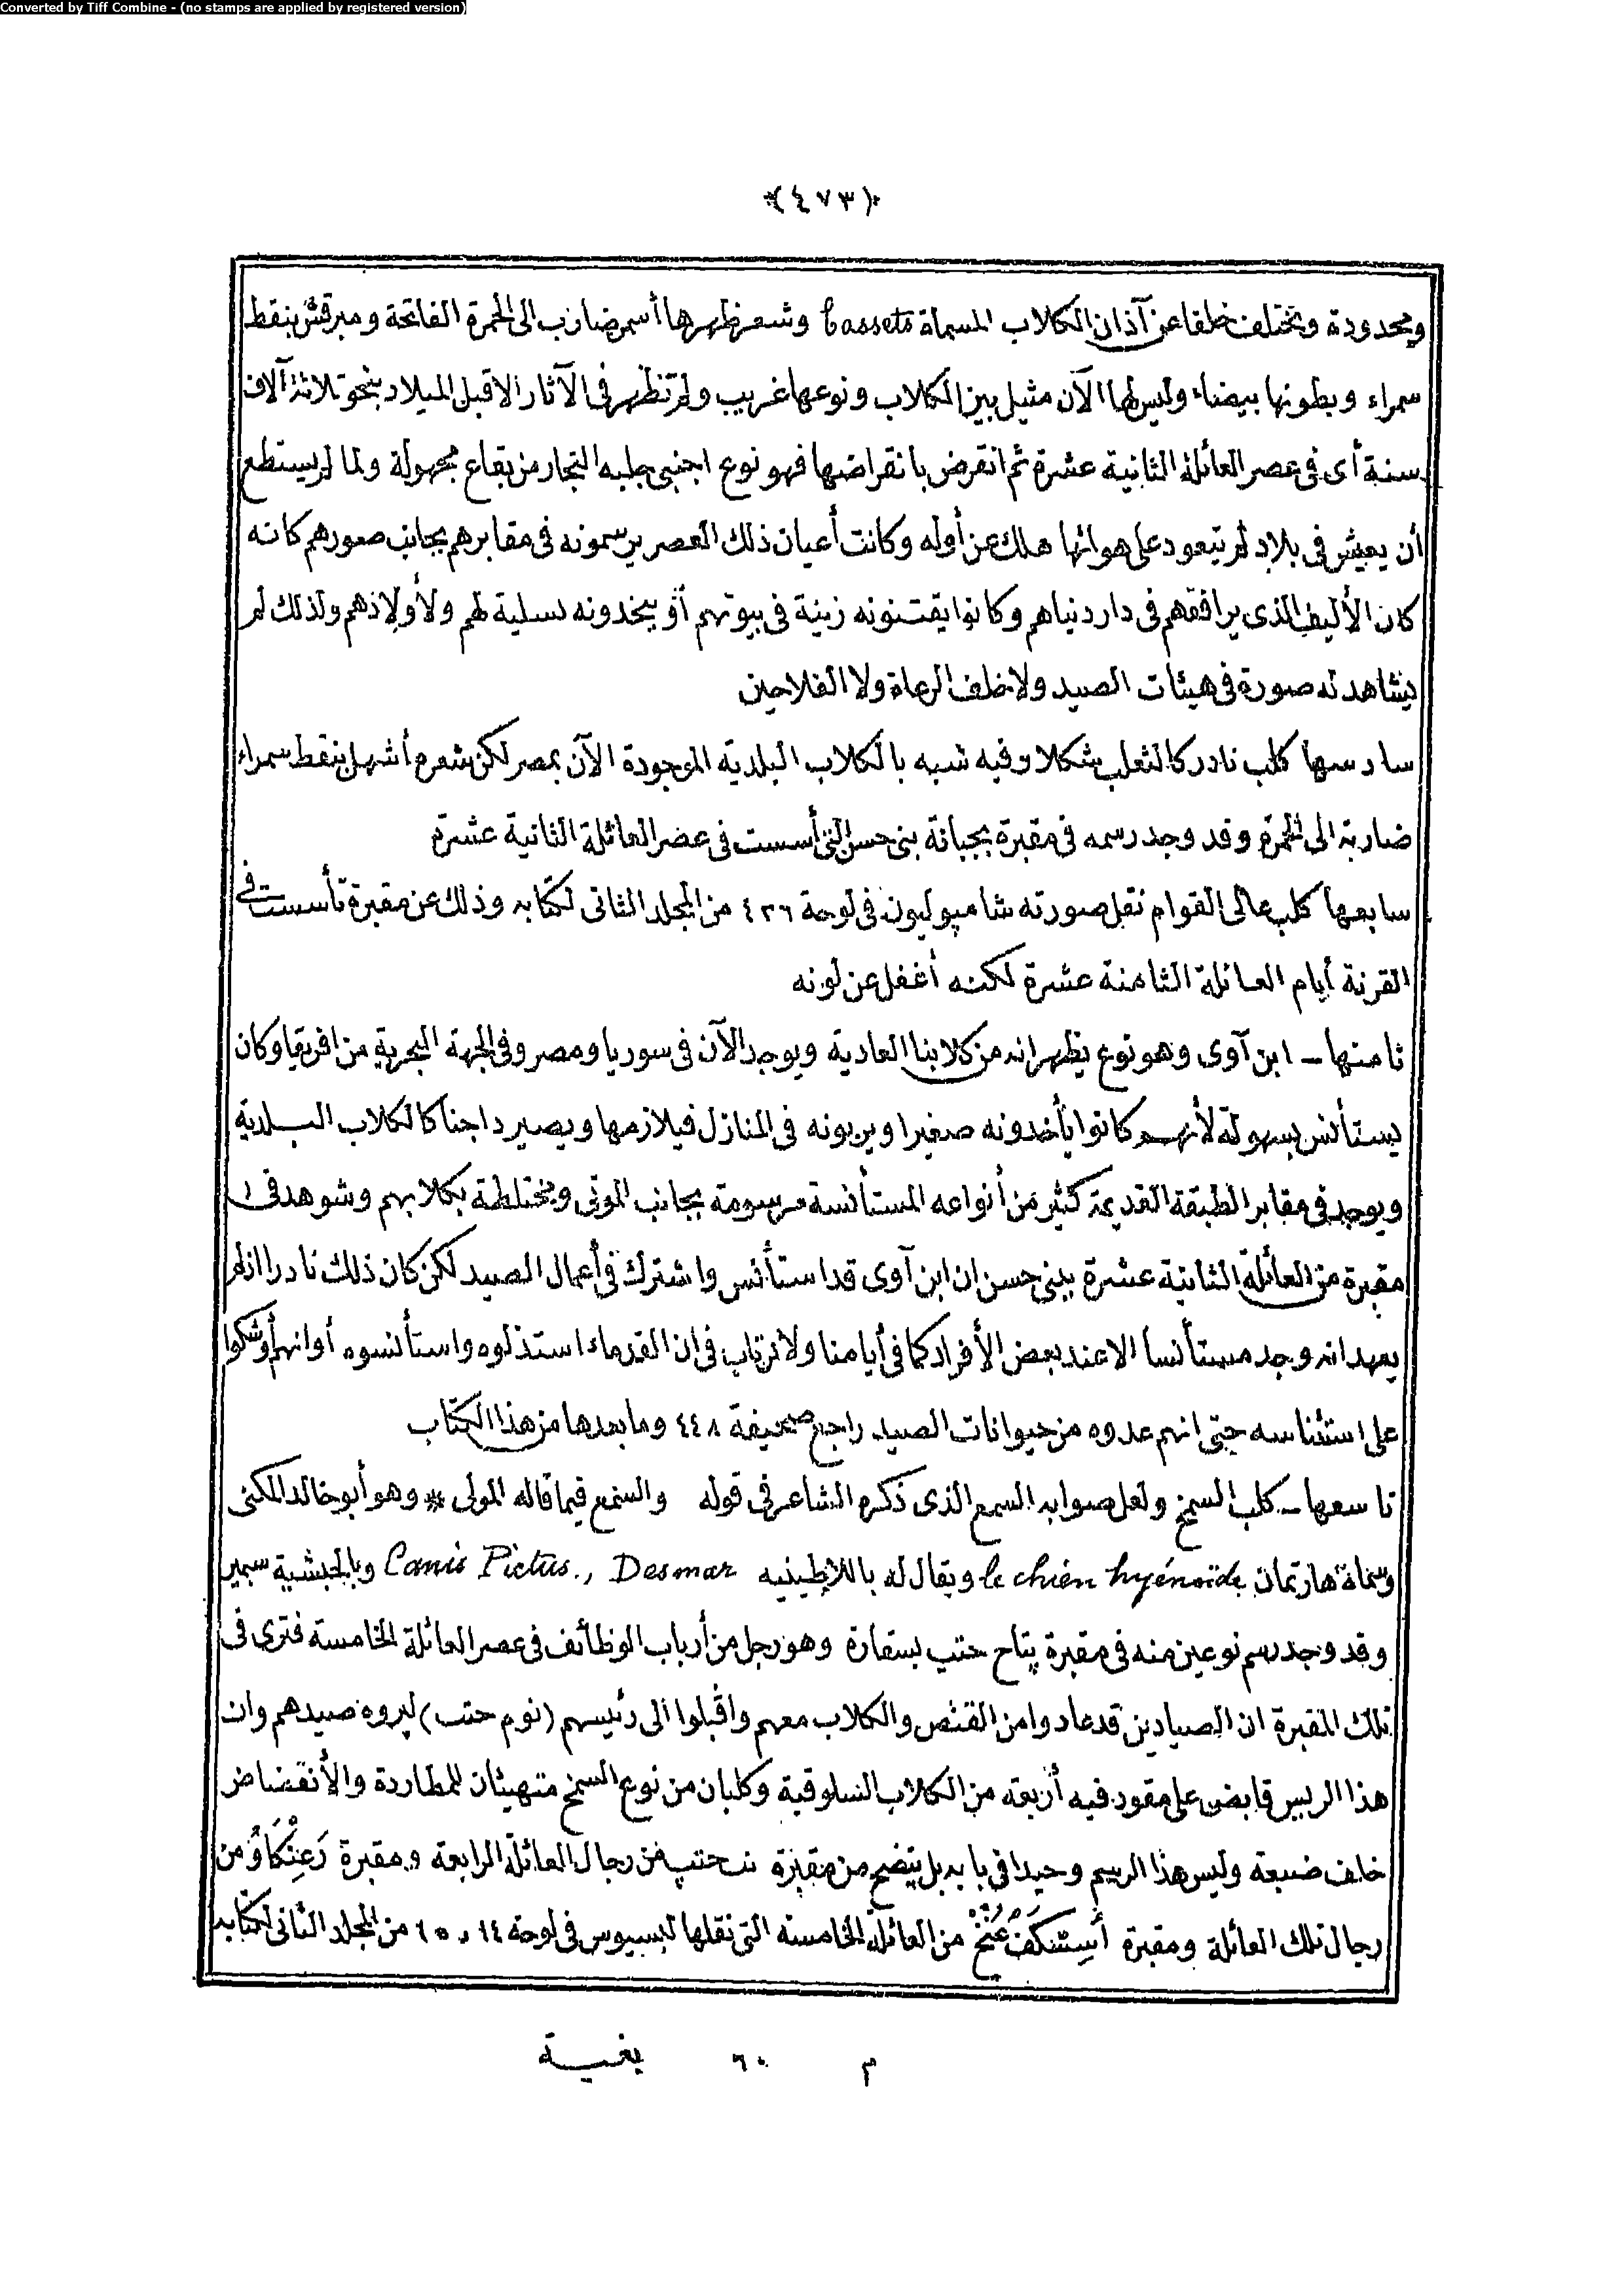 Converted by Tiff Combine - (no stamps are applied by registered version)
(٤٧٣)
ومحدودة وتختلف خلقا عن آذان الكلاب المسماة bassets وشعر ظهرها أسمر ضارب الى الحمرة الفاتحة ومبرقش بنقط
سمراء وبطونها بيضاء وليس لها الآن مثيل بين الكلاب ونوعها غريب ولم تظهر فى الآثار الا قبل الميلاد بنحو ثلاثة آلاف
سنة أى فى عصر العائلة الثانية عشرة ثم انقرض بانقراضها فهو نوع اجنبى جلبه التجار من بقاع مجهولة ولما لم يستطع
أن يعيش فى بلاد لم يتعود على هوائها هلك عن أوله وكانت أعيان ذلك العصر يرسمونه فى مقابرهم بجانب صورهم كانه
كان الأليف الذى يرافقهم فى دار دنياهم وكانوا يقتنونه زينة فى بيوتهم أو يتخدونه تسلية لهم ولأولادهم ولذلك لم
يشاهد له صورة فى هيئات الصيد ولا خلف الرعاة ولا الفلاحين
سادسها كلب نادر كالثعلب شكلا وفيه شبه بالكلاب البلدية الموجودة الآن بمصر لكن شعره أشهل بنقط سمراء
ضاربة الى الحمرة وقد وجد رسمه فى مقبرة بجبانة بنى حسن التى أسست فى عصر العائلة الثانية عشرة
سابعها كلب عالى القوام نقل صورته شامپوليون فى لوحة ٤٢٦ من المجلد الثانى لكتابه وذلك عن مقبرة تأسست فى
القرنة أيام العائلة الثامنة عشرة لكنه أغفل عن لونه
ثامنها – ابن آوى وهو نوع يظهر انه من كلابنا العادية ويوجد الآن فى سوريا ومصر وفى الجهة البحرية من افريقا وكان
يستأنس بسهولة لأنهم كانوا يأخدونه صغيرا ويربونه فى المنازل فيلازمها ويصير داجنا كالكلاب البلدية
ويوجد فى مقابر الطبقة القديمة كثير من أنواعه المستأنسة مرسومة بجانب الموتى ومختلطة بكلابهم وشوهد فى
مقبرة من العائلة الثانية عشرة ببنى حسن ان ابن آوى قد استأنس واشترك فى أعمال الصيد لكن كان ذلك نادرا اذ لم
يعهد انه وجد مستأنسا الا عند بعض الأفراد كما فى أيامنا ولا نرتاب فى ان القدماء استذلوه واستأنسوه أو انهم أوشكوا
على استئناسه حتى انهم عدوه من حيوانات الصيد راجع صحيفة ٤٤٨ وما بعدها من هذا الكتاب
تاسعها – كلب السمخ ولعل صوابه السمع الذى ذكره الشاعر فى قوله والسمع فيما قاله المولى * وهو أبو خالد المكنى
وسماه هارتمان le chien hyénoïde ويقال له باللاطينيه Canis Pictus., Desmar وبالحبشية سمير
وقد وجد رسم نوعين منه فى مقبرة پتاح حتب بسقارة وهو رجل من أرباب الوظائف فى عصر العائلة الخامسة فترى فى
تلك المقبرة ان الصيادين قد عادوا من القنص والكلاب معهم واقبلوا الى رئيسهم (نوم حتب) ليروه صيدهم وان
هذا الريس قابض على مقود فيه أربعة من الكلاب السلوقية وكلبان من نوع السمخ متهيئان للمطاردة والأنقضاض
خلف ضبعة وليس هذا الرسم وحيدا فى بابه بل يتضح من مقبرة حتب من رجال العائلة الرابعة ومقبرة رَعِنْكَاوُ من
رجال تلك العائلة ومقبرة من العائلة الخامسة التى نقلها لبسيوس فى لوحة ١٤ و ١٥ من المجلد الثانى لكتابه
م ٦٠ بغية